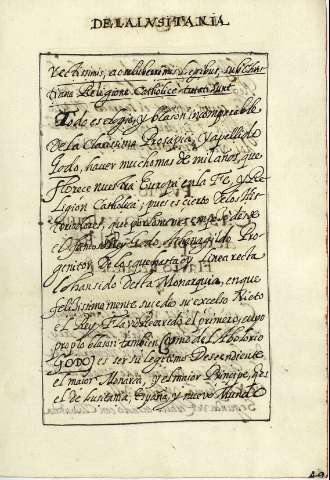 DE LA LVSITANIA
rectissimis, ac celiberrimis legibus, sub Chris
tiana Religione Catholice
Todo es elogio, y blason incomparable
De la Clarissima Prosapia, y apellido
Godo, haver mucho mas de mil años, que
florece nuestra Europa en la Fe, y Re
ligion Catholica; pues es cierto de los His
toriadores, que por lo menos empeso desde
el Rey Godo, Athanagildo Pro
genitor de los que hasta oy linea recta
le han sido de la Monarquia, en que
felissimamente sucedio su excelso Nieto
el Rey Flavio Recaredo el primero; cuyo
proprio blason tambien (como del Abolorio
GODO) es ser su legitimo Descendiente
el maior Monarca, y el maior Principe, que es
el de Lusitania, España, y nuevo Mundo